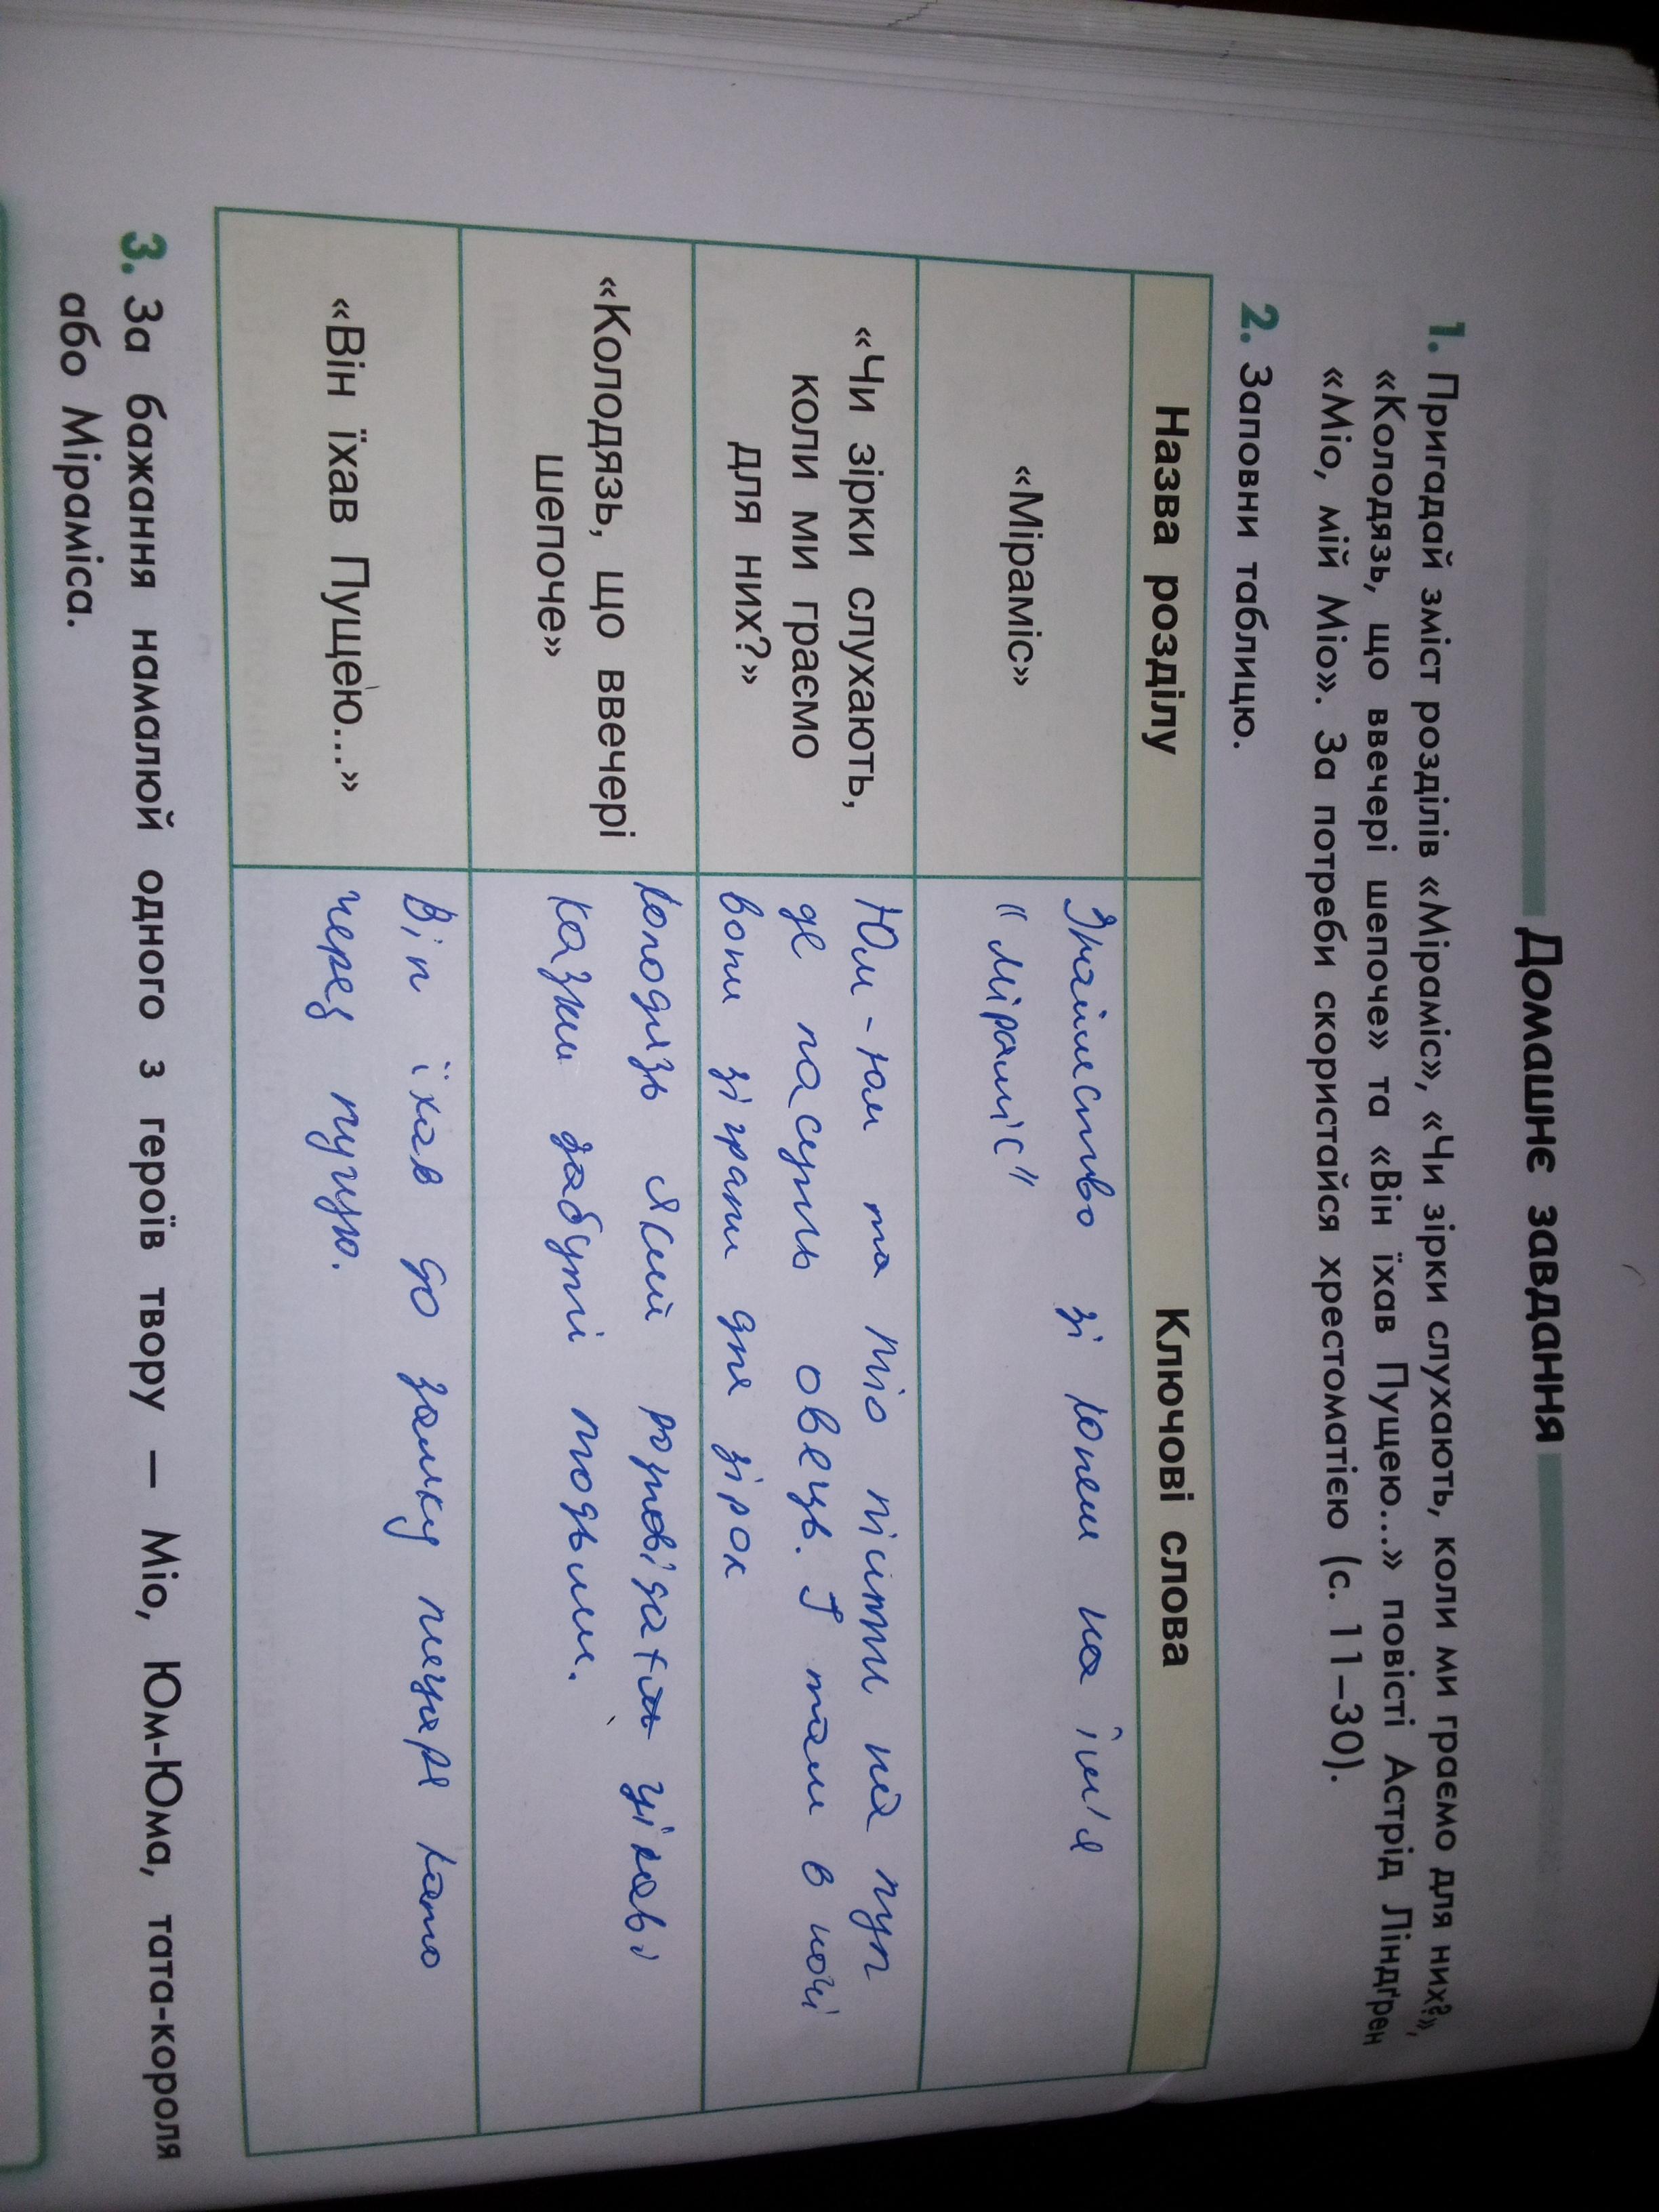 Домашнє завдання
1. Пригадай зміст розділів «Міраміс», «Чи зірки слухають, коли ми граємо для них?»,
«Колодязь, що ввечері шепоче» та «Він їхав Пущею...» повісті Астрід Ліндґрен
«Міо, мій Міо». За потреби скористайся хрестоматією (с. 11–30).
2. Заповни таблицю.
Назва розділу
Ключові слова
«Міраміс»
Знайомство зі конем на ім'я
"Міраміс"
«Чи зірки слухають,
коли ми граємо
для них?»
Юм-юм та Міо пішли на луг
де пасуть овець. І там в ночі
вони зіграли для зірок
«Колодязь, що ввечері
шепоче»
колодязь який цікаві
казки забуті людьми.
«Він їхав Пущею...»
Він їхав до замку лицаря като
через пущу.
3. За бажання намалюй одного з героїв твору — Міо, Юм-Юма, тата-короля
або Міраміса.